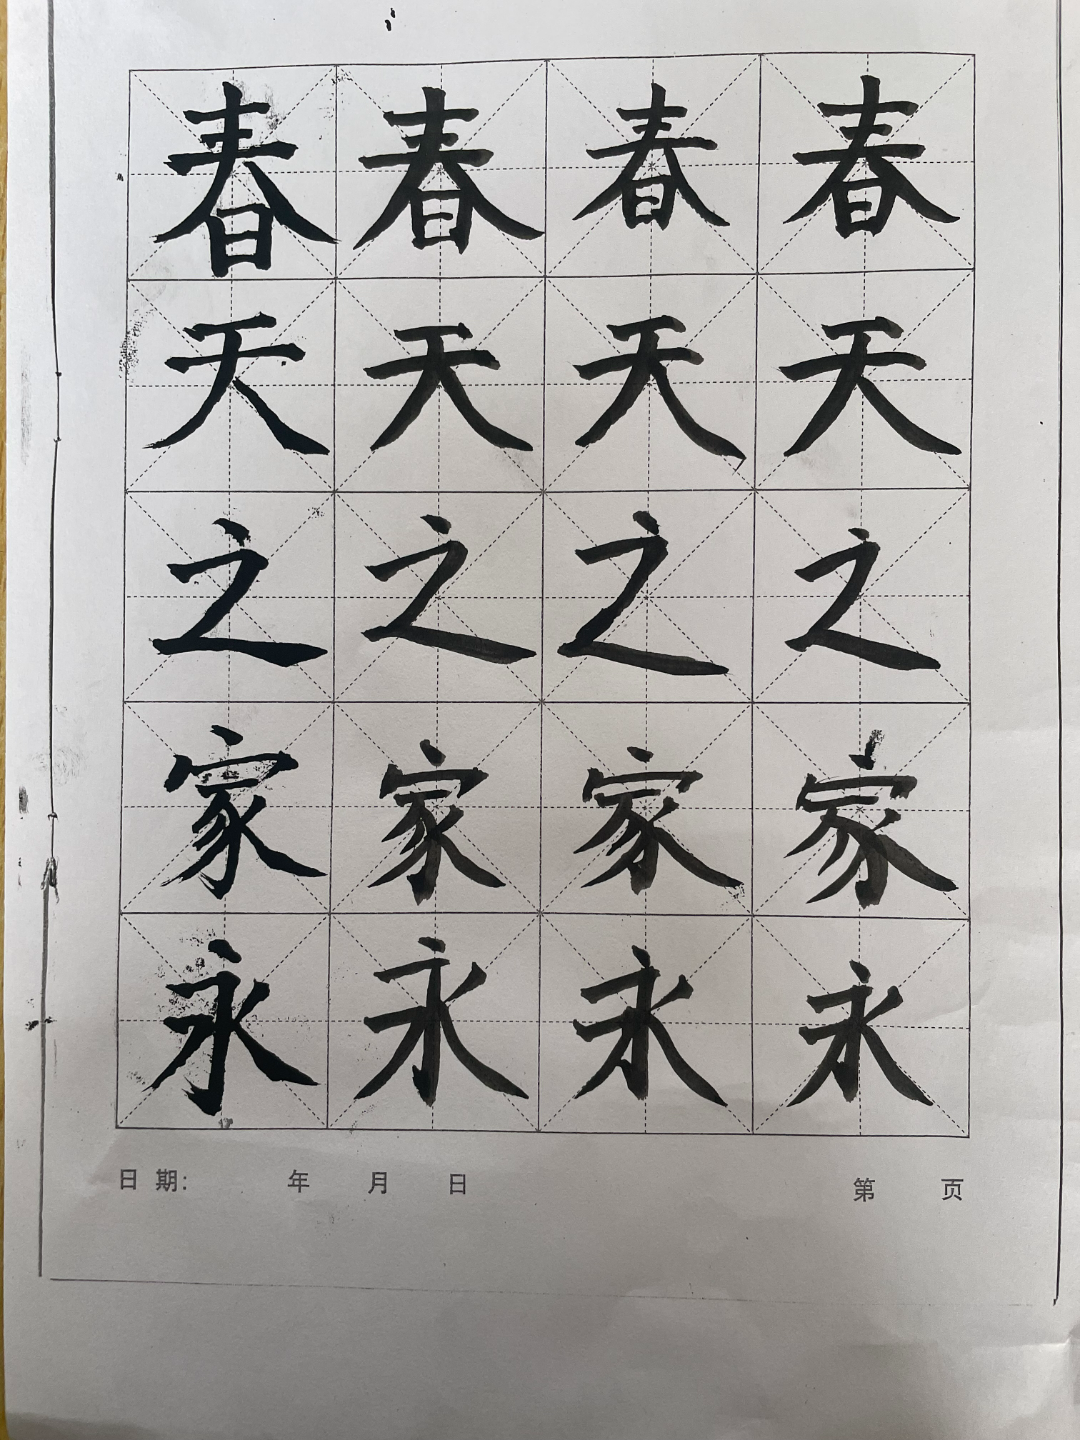 春春春春
天天天天
之之之之
家家家家
永永永永
日期: 年 月 日 第 页